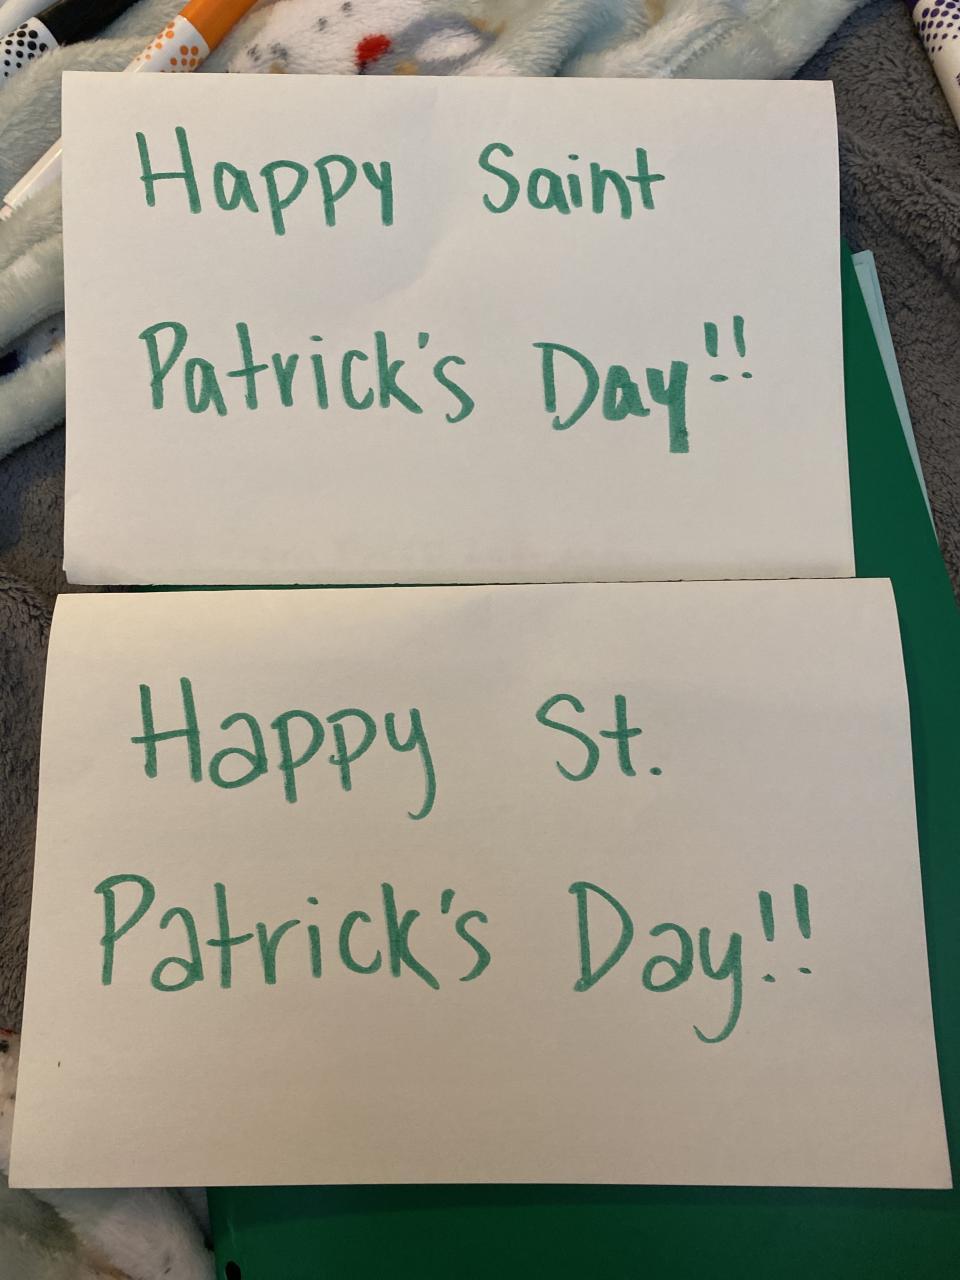 Happy Saint
Patrick's Day!!
Happy St.
Patrick's Day!!